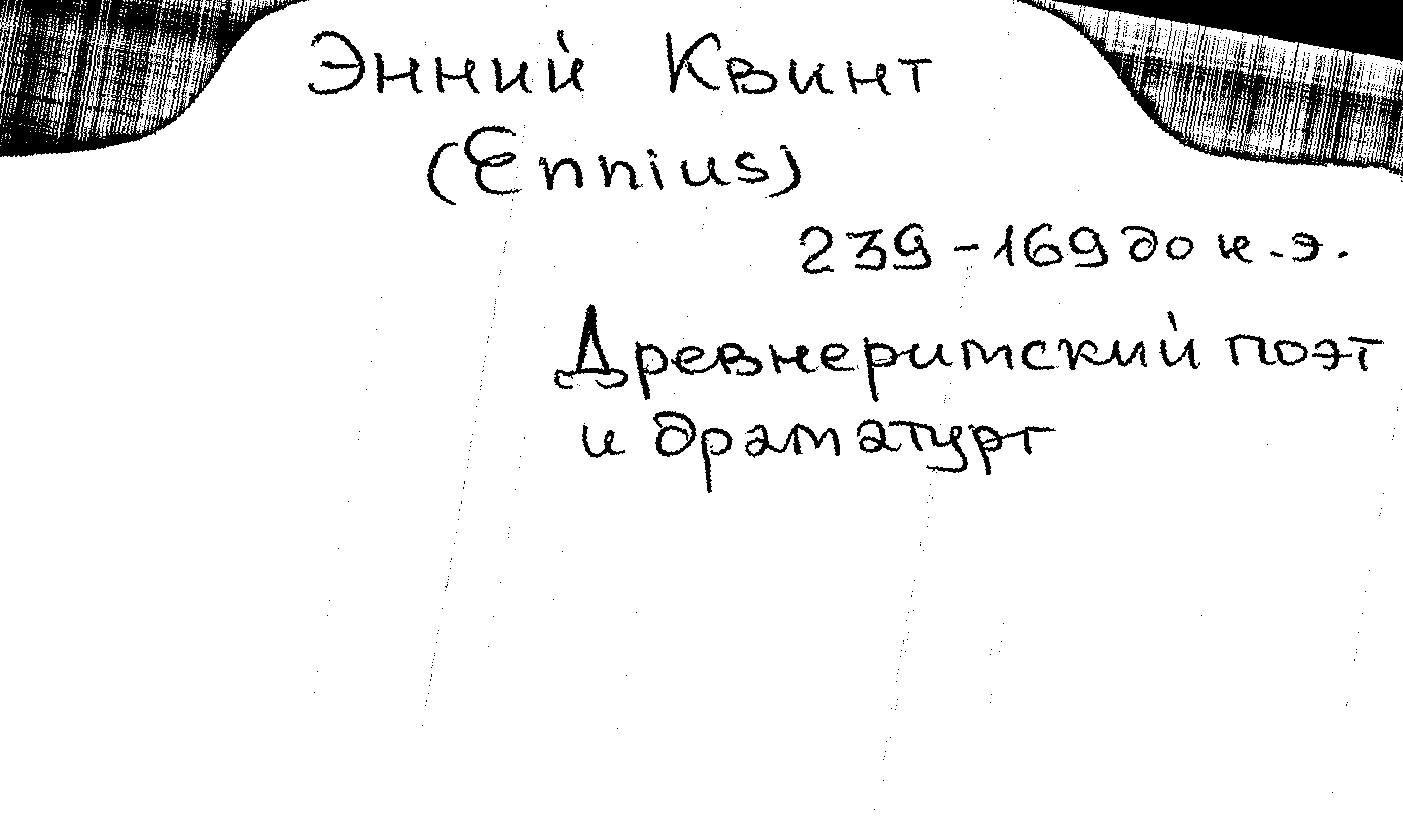 Энний Квинт
(Ennius)
239-169 до н.э.
Древнеримский поэт
и драматург